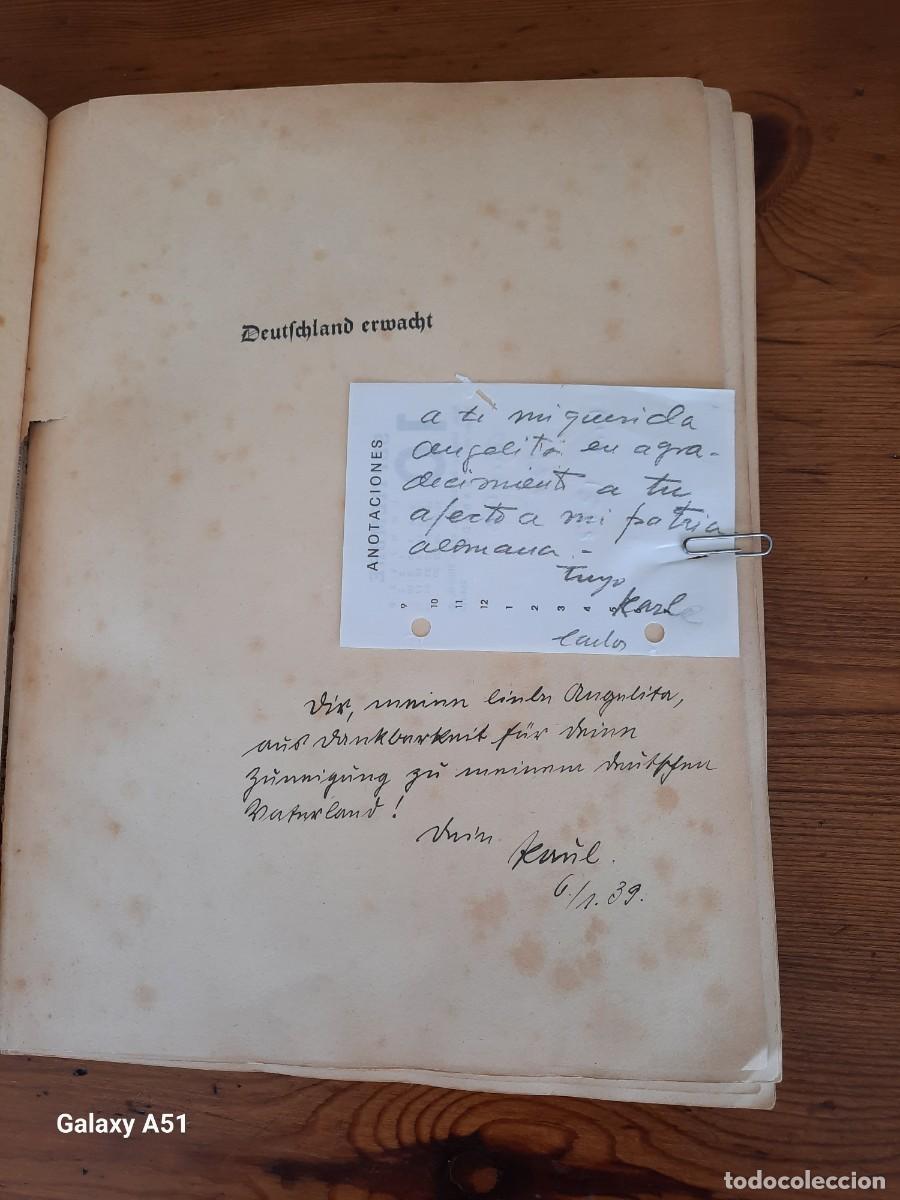 Deutschland erwacht
ANOTACIONES
a ti mi querida
Angelita en agra-
decimiento a tu
afecto a mi patria
alemana.-
tuyo
Karl
Carlos
9 10 11 12 1 2 3 4 5
Dir, meine liebe Angelita,
aus Dankbarkeit für deine
Zuneigung zu meinem deutschen
Vaterland!
Dein
6./1.39.
Galaxy A51
todocoleccion